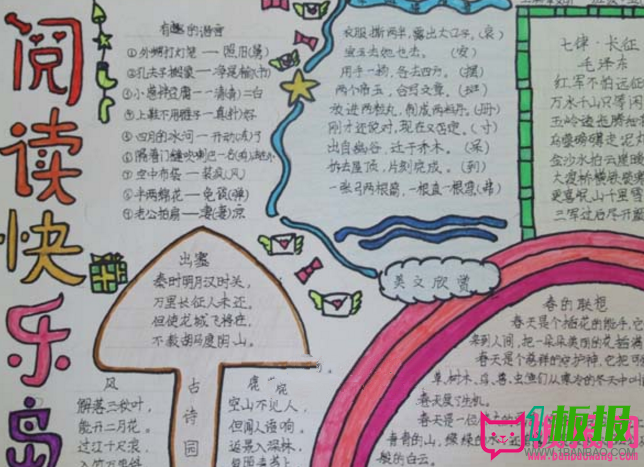 阅读快乐岛
有趣的谐音
①外甥打灯笼——照旧(舅)
②孔夫子搬家——净是输(书)
③小葱拌豆腐——一清(青)二白
④上鞋不用锥子——真(针)好
⑤四月的冰河——开动(冻)了
⑦空中布袋——装疯(风)
衣服撕两半,露出大口子。(哀)
宝玉去他也去。
用手一挪,各去四方。(摆)
两个帝王,合写文章。(斑)
放进两粒丸,制成两相丹。(册)
出自幽谷,迁于乔木。(呆)
拆去屋顶,片刻完成。(刻)
一张弓两根箭,一根直一根弯(弗)
七律·长征
毛泽东
红军不怕远征
万水千山只等闲
五岭逶迤腾细
乌蒙磅礴走泥丸
金沙水拍云崖暖
大渡桥横铁索寒
更喜岷山千里雪
三军过后尽开颜
出塞
秦时明月汉时关,
万里长征人未还。
但使龙城飞将在,
不教胡马度阴山。
古诗园
风
解落三秋叶,
能开二月花。
过江千尺浪,
入竹万竿斜
鹿柴
空山不见人,
但闻人语响。
返景入深林,
复照青苔上
美文欣赏
春的联想
春天是个插花的能手,它
来到人间,把一朵朵美丽的花插满
春天是个慈祥的守护神,它把
草,树木,鸟,兽,虫儿们从寒冷的冬天中叫
春天是个乐机。
春天是一位
青青的山,绿绿的水
般的白云。
板报
www.banbaowang.com